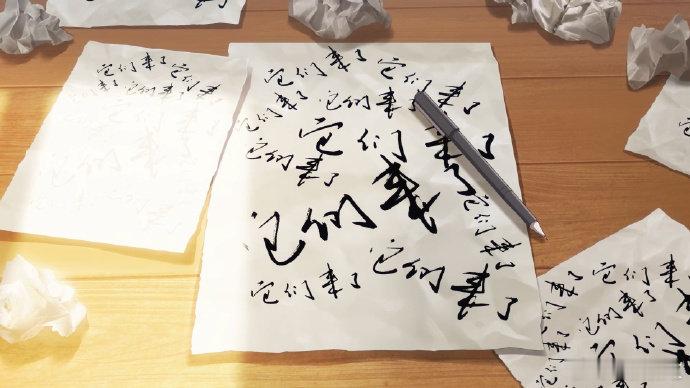 它们来了它们
来了它们来了
它们来了 它们来了
它们来了 它们来了
它们来了
它们来了
它们来了
它们来了
它们来了 它们来了
它们来了 它们来
它们来了
们